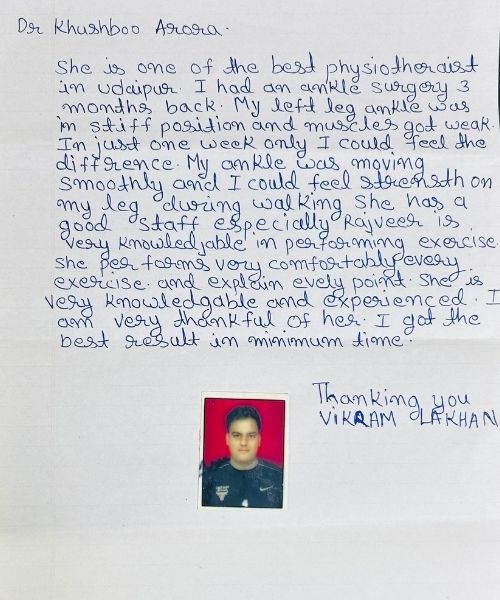 Dr Khushboo Arora.
She is one of the best physiotheraist
in udaipur. I had an ankle surgery 3
months back. My left leg ankle was
in stiff position and muscles got weak.
In just one week only I could feel the
difference. My ankle was moving
smoothly and I could feel strength on
my leg during walking She has a
good staff especially Rajveer is
very knowledjable in performing exercise.
she performs very comfortably every
exercise. and explain evely point. She is
very knowledgable and experienced. I
am very thankful of her. I got the
best result in minimum time.
Thanking you
VIKRAM LAKHAN